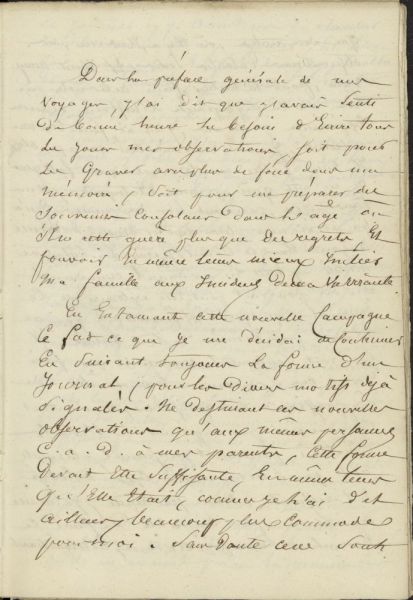 Dans la préface générale de mes
voyages, j'ai dit que j'avais senti
de bonne heure le besoin d'Ecrire tous
les jours mes observations, soit pour
les Graver avec plus de force dans ma
mémoire, soit pour me préparer des
Souvenirs Consolans dans l'âge où
il ne reste guère plus que des regrets, Et
pouvoir En même tems mieux Initier
ma famille aux Incidens de ma vie errante.
En Entamant cette nouvelle Campagne
ce fut ce que je me décidai à Continuer
En Suivant toujours la forme d'un
Journal, pour les divers motifs déjà
Signalés. Ne destinant ces nouvelles
observations qu'aux mêmes personnes
C. a. d. à mes parents, Cette forme
devait Etre Suffisante, En même tems
qu'Elle Etait, comme je l'ai dit
ailleurs, beaucoup plus Commode
pour moi. Sans doute ceux